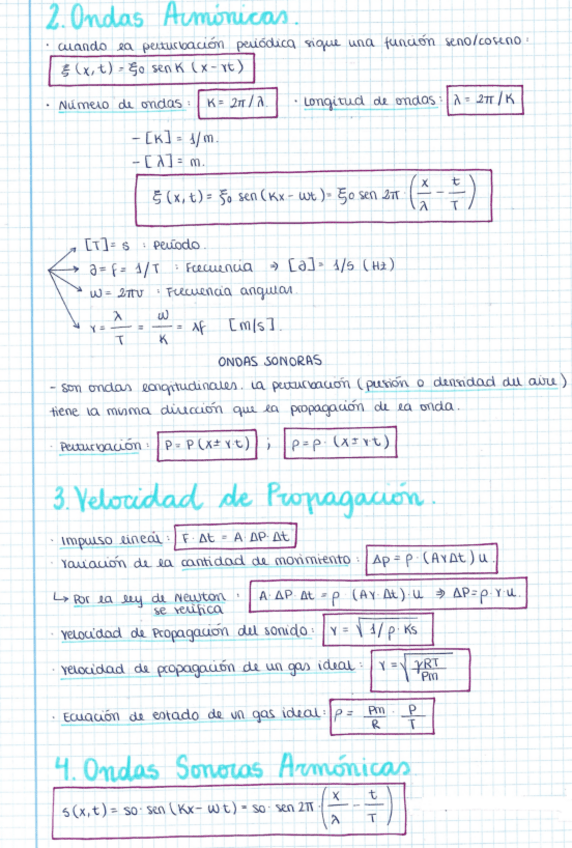 2. Ondas Armónicas.
· cuando la perturbación periódica sigue una función seno/coseno:
ξ(x,t) = ξ0 sen K (x-vt)
· Número de ondas: K = 2π/λ · Longitud de ondas: λ = 2π/K
- [K] = 1/m.
- [λ] = m.
ξ(x,t) = ξ0 sen (Kx - ωt) = ξ0 sen 2π · (x/λ - t/T)
[T] = s : Período.
∂ = f = 1/T : Frecuencia ⇒ [∂] = 1/s (Hz)
ω = 2πν : Frecuencia angular.
v = λ/T = ω/K = λf [m/s].
ONDAS SONORAS
- Son ondas longitudinales. la perturbación (presión o densidad del aire)
tiene la misma dirección que la propagación de la onda.
· Perturbación: P = P(x ± vt) ; ρ = ρ · (x ± vt)
3. Velocidad de Propagación.
· Impulso lineal: F · Δt = A · ΔP · Δt
· Variación de la cantidad de movimiento: Δp = ρ · (AvΔt) u.
↳ Por la ley de Newton : A · ΔP · Δt = ρ · (Av · Δt) · u ⇒ ΔP = ρ · v · u.
se verifica
· Velocidad de Propagación del sonido: v = √1/ρ · Ks
· Velocidad de propagación de un gas ideal: v = √γRT/Pm
· Ecuación de estado de un gas ideal: ρ = Pm/R · P/T
4. Ondas Sonoras Armónicas
s(x,t) = so · sen (Kx - ωt) = so · sen 2π · (x/λ - t/T)